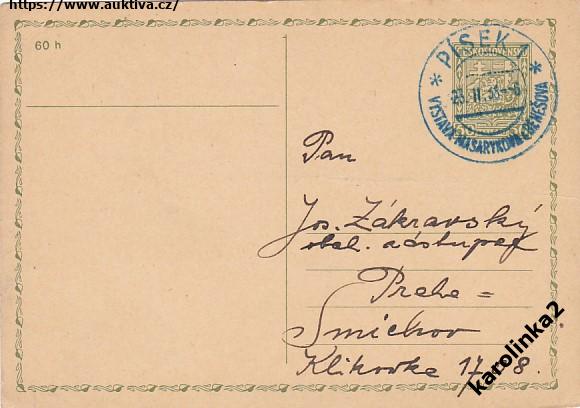 https://www.auktiva.cz/
60 h
PÍSEK 1
ČESKOSLOVENSKO
VÝSTAVA MASARYKOVA BENEŠOVA
Pan
Jos. Zákravský
obch. zástupce
Praha =
Smíchov
Klikovka
karolinka2